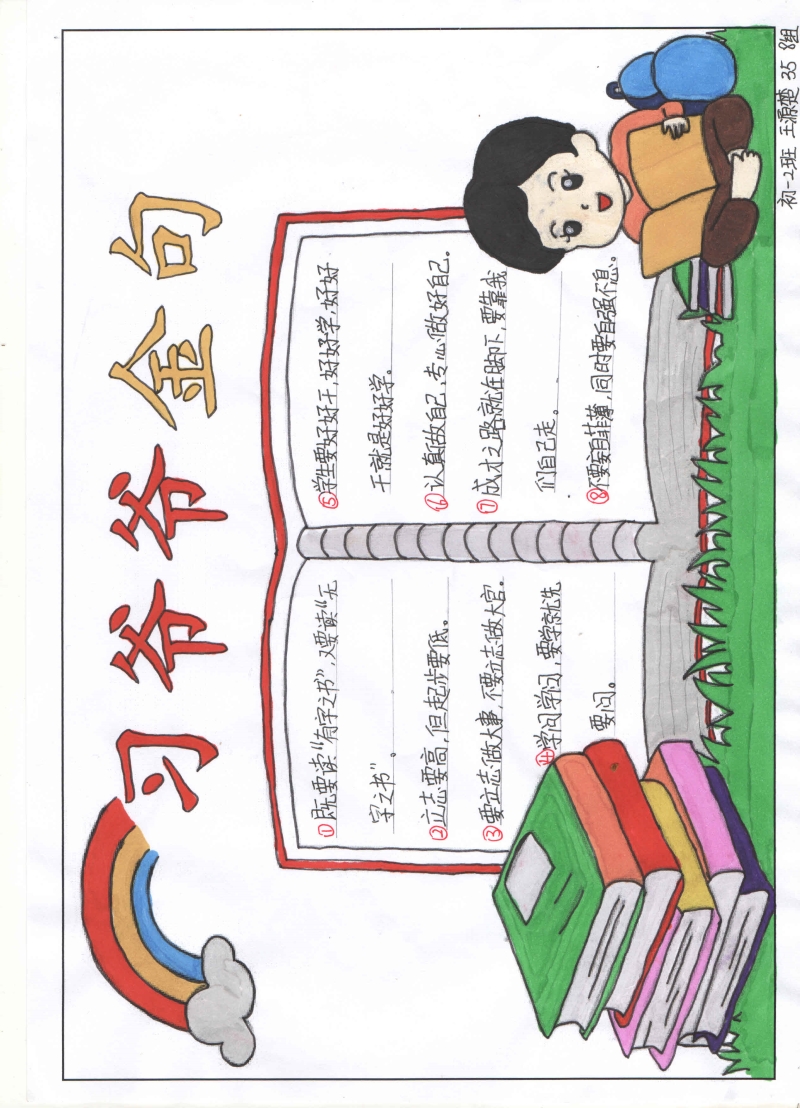 习爷爷金句
①既要读“有字之书”，又要读“无
字之书”。
②立志要高，但起步要低。
③要立志做大事，不要立志做大官。
④学问学问，要学就先
要问。
⑤学生要好好干，好好学，好好
干就是好好学。
⑥认真做自己，专心做好自己。
⑦成才之路就在脚下，要靠我
们自己走。
⑧不要妄自菲薄，同时要自强不息。
初一2班 王源楚 35 8组